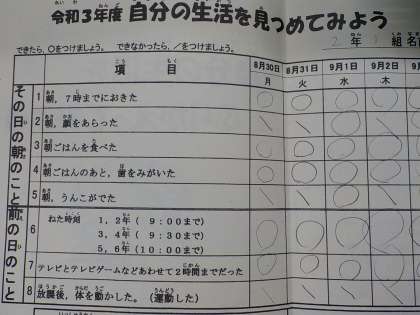 令和3年度 自分の生活を見つめてみよう
できたら、○をつけましょう。 できなかったら、／をつけましょう。
2年 組 名
項目 8月30日 8月31日 9月1日 9月2日 9月
月 火 水 木
その日の朝のこと
1 朝、7時までにおきた
2 朝、顔をあらった
3 朝ごはんを食べた
4 朝ごはんのあと、歯をみがいた
5 朝、うんこがでた
前の日のこと
6 ねた時刻 1，2年（ 9：00まで）
3，4年（ 9：30まで）
5，6年（10：00まで）
7 テレビとテレビゲームなどあわせて2時間までだった
8 放課後、体を動かした。（運動した）